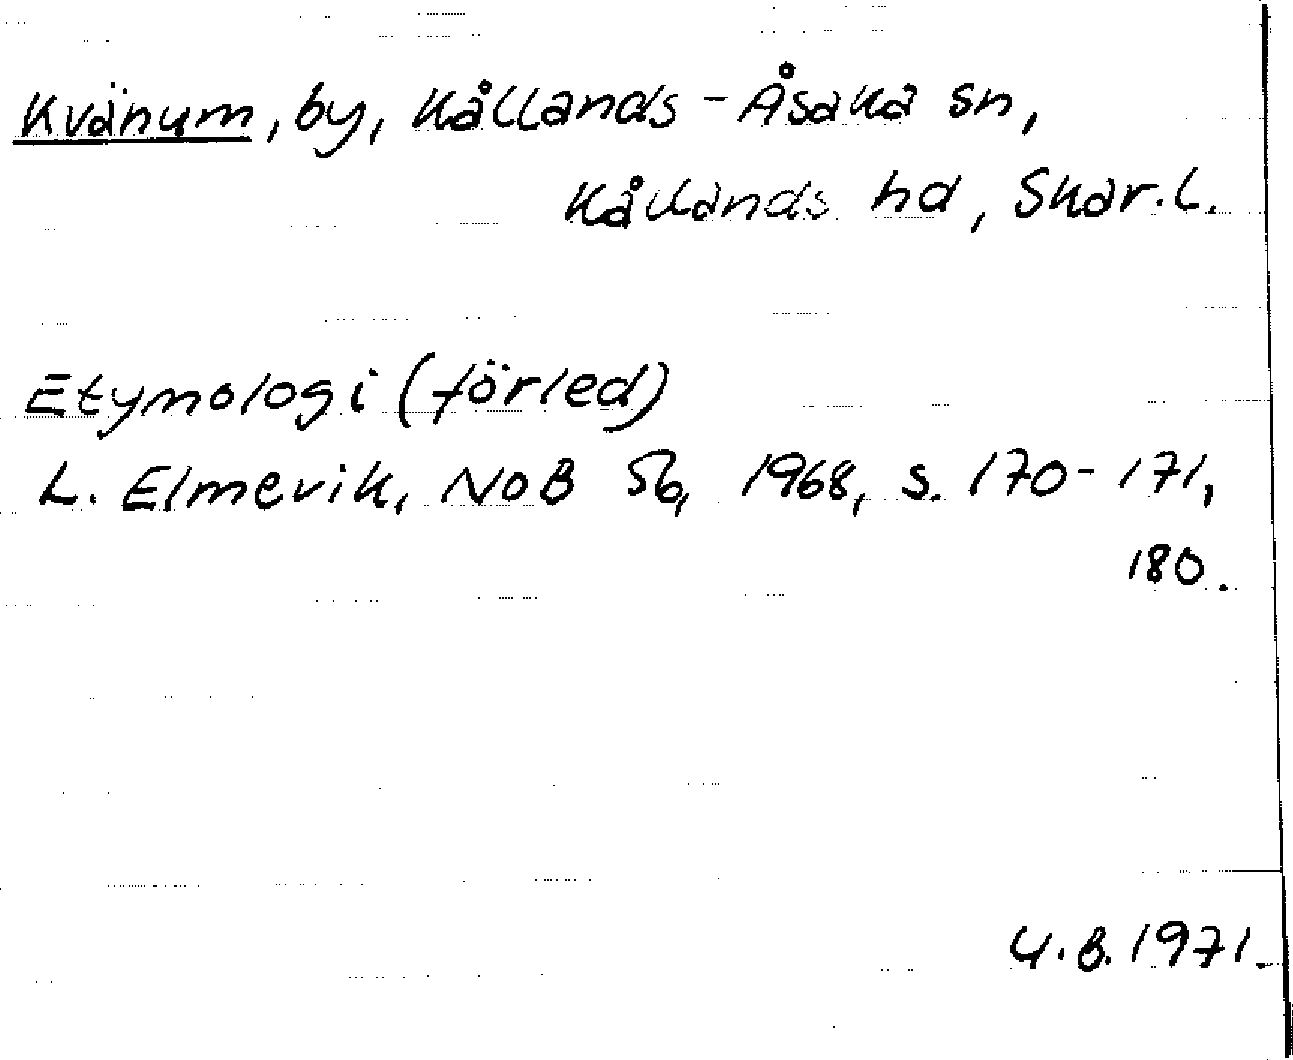 Kvänum, by, Kållands-Åsaka sn,
Kållands hd, Skar.l.
Etymologi (förled)
L. Elmevik, NoB 56, 1968, s. 170-171,
180.
U.B. 1971.